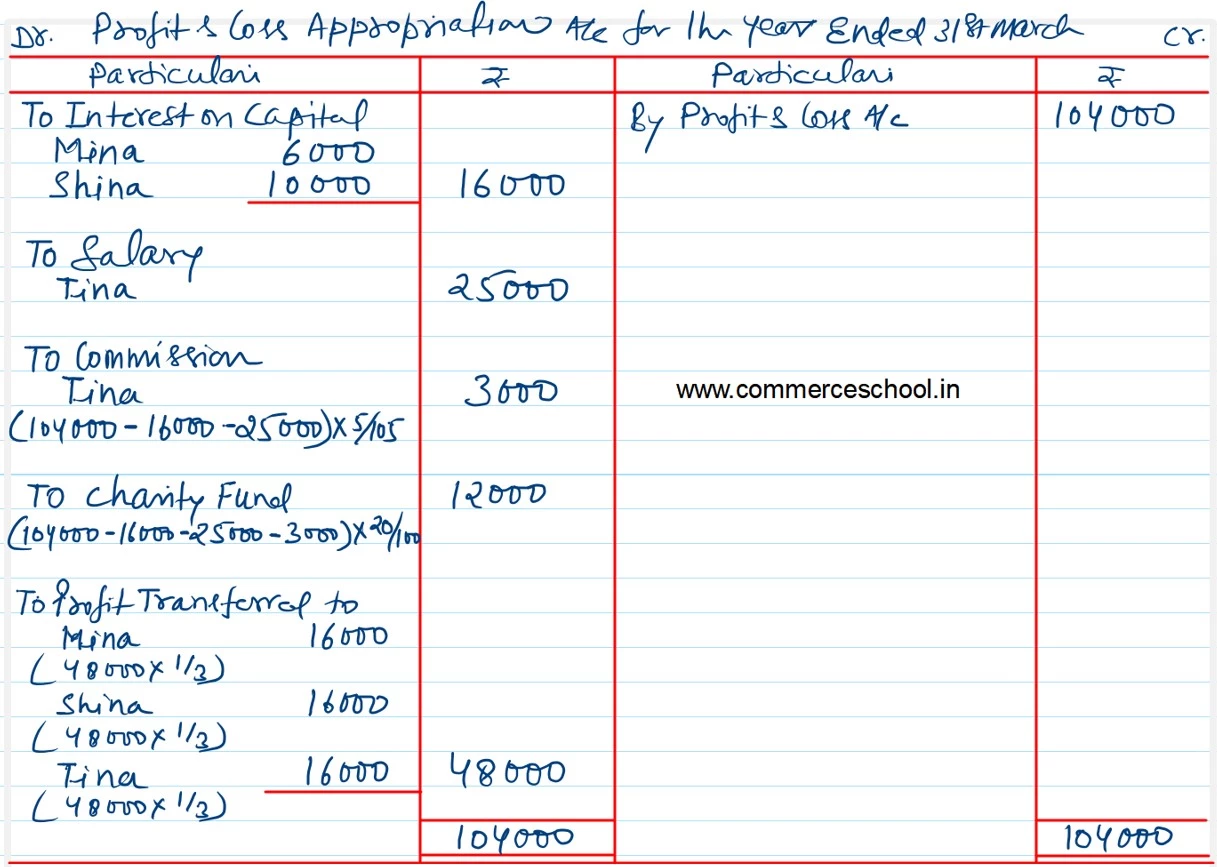 Dr. Profit & Loss Appropriation A/c for the year Ended 31st March Cr.
Particulars ₹ Particulars ₹
To Interest on Capital By Profit & Loss A/c 104000
Mina 6000
Shina 10000 16000
To Salary
Tina 25000
To Commission
Tina 3000 www.commerceschool.in
(104000-16000-25000)×5/105
To Charity Fund 12000
(104000-16000-25000-3000)×20/100
To Profit Transferred to
Mina 16000
(48000×1/3)
Shina 16000
(48000×1/3)
Tina 16000 48000
(48000×1/3)
104000 104000